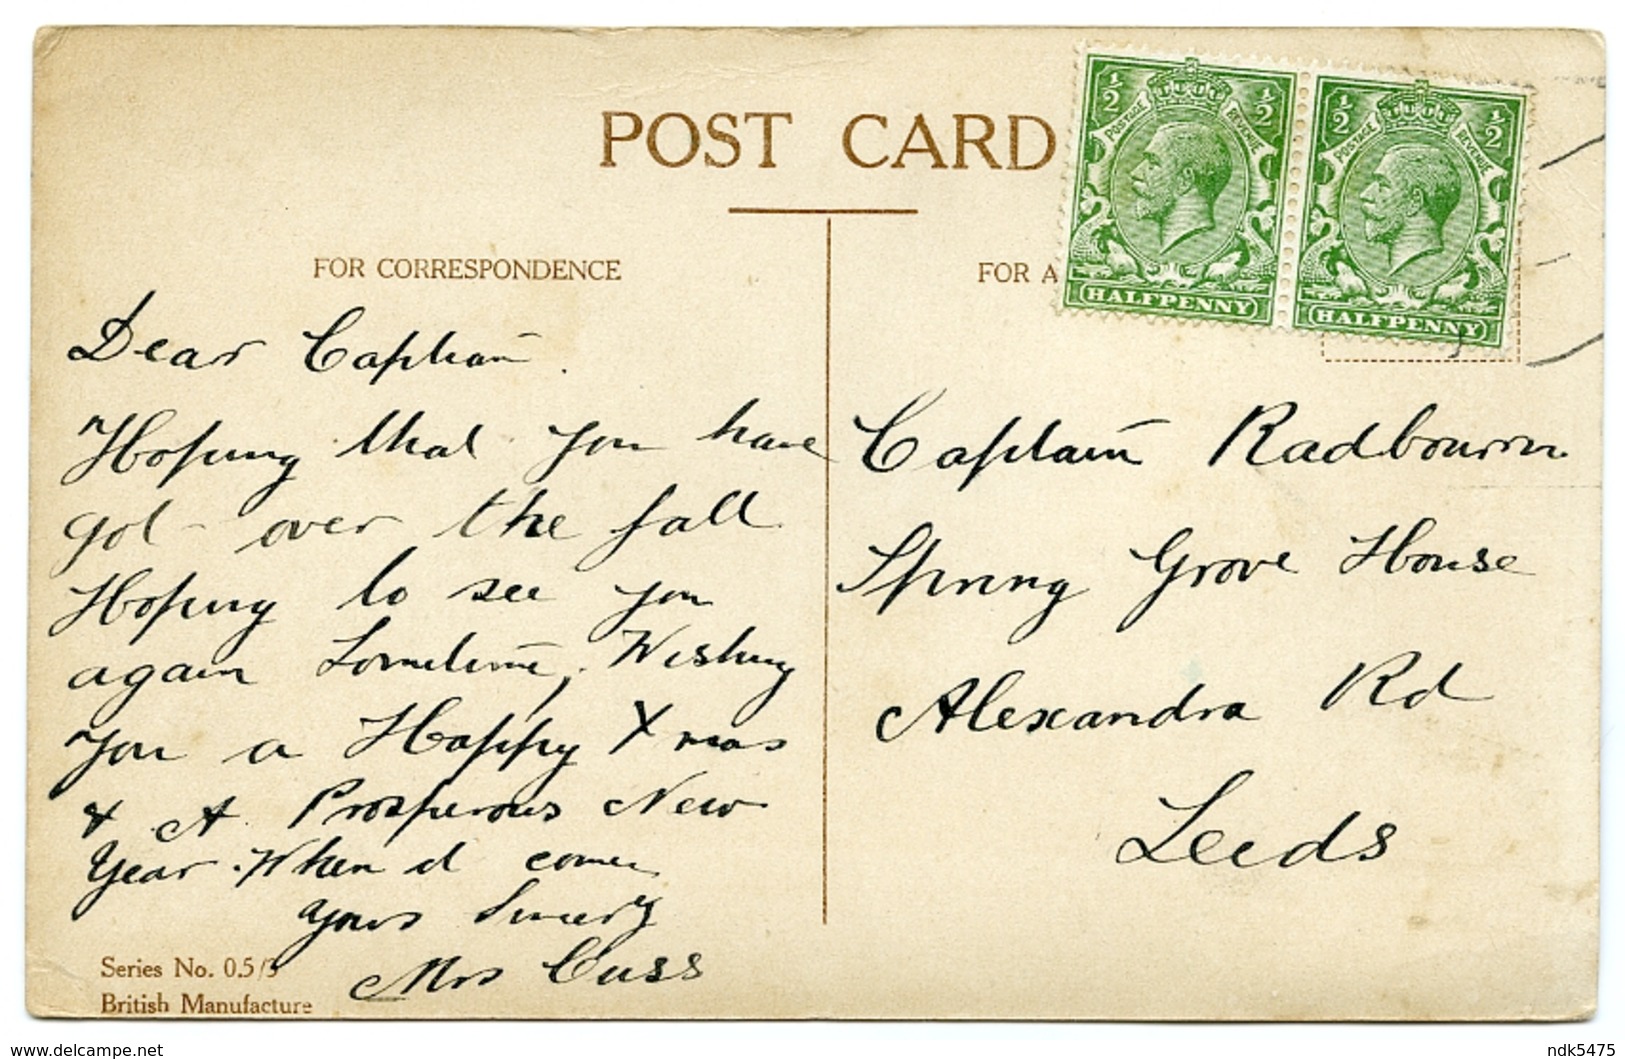 POST CARD
FOR CORRESPONDENCE
FOR A
1/2 POSTAGE REVENUE 1/2
HALFPENNY
1/2 POSTAGE REVENUE 1/2
HALFPENNY
Dear Captain
Hoping that you have
got over the fall
Hoping to see you
again Sometime, Wishing
you a Happy Xmas
& A Prosperous New
Year. When it comes
yours Sincerly
Mrs Cuss
Captain Radbourn
Spring Grove House
Alexandra Rd
Leeds
Series No. 0.5/3
British Manufacture
www.delcampe.net
ndk5475